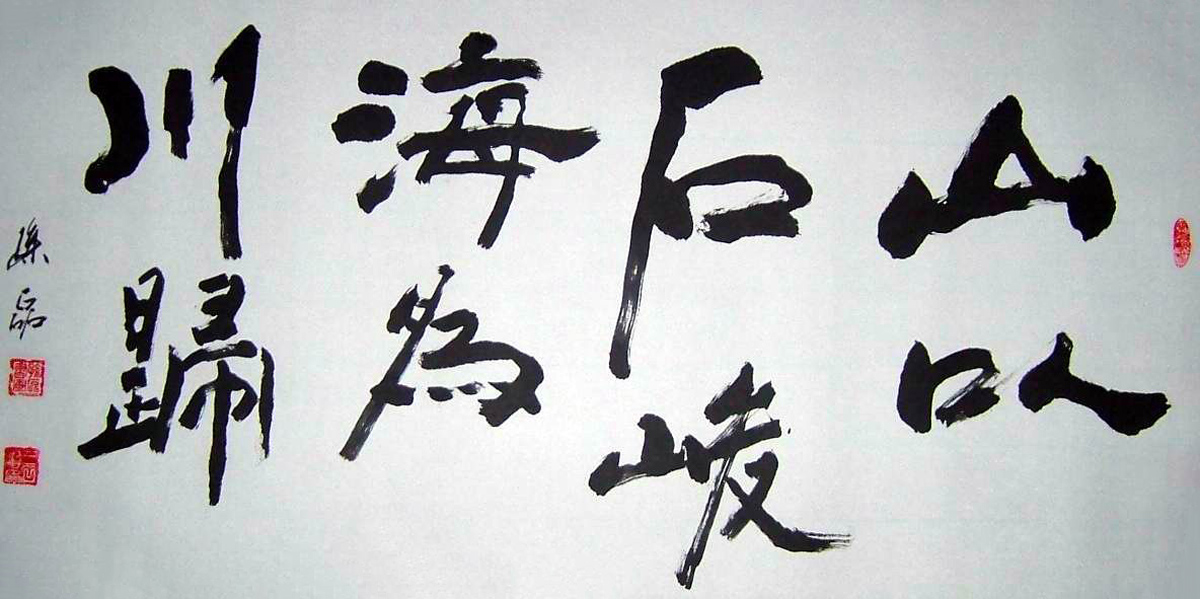 山以
石峻
海為
川歸
孫磊